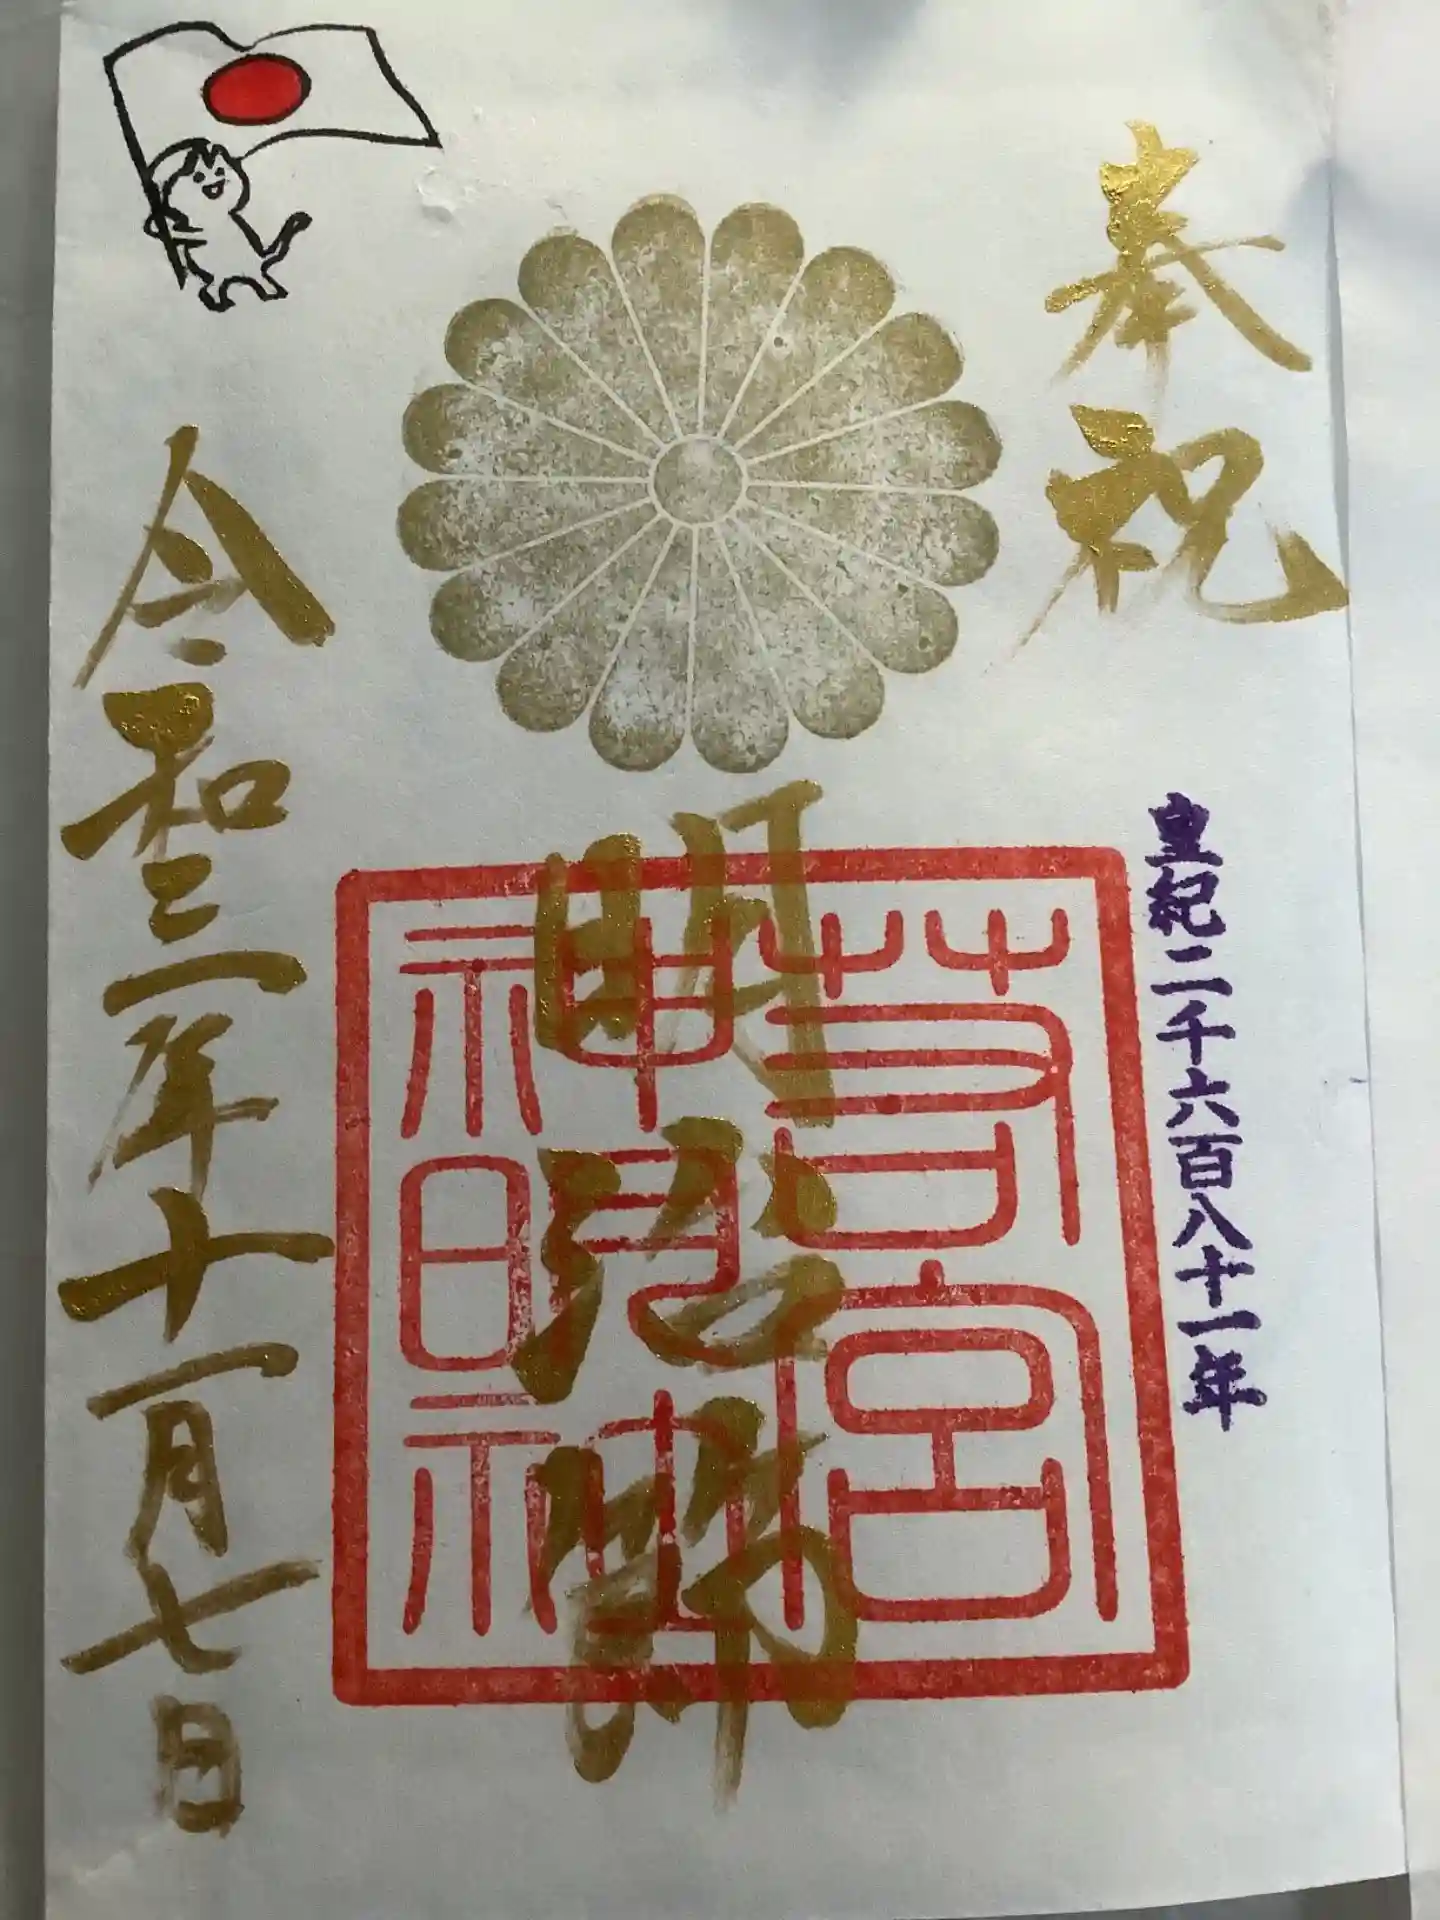 奉祝
皇紀二千六百八十一年
明治節
若宮
神明社
令和三年十一月七日